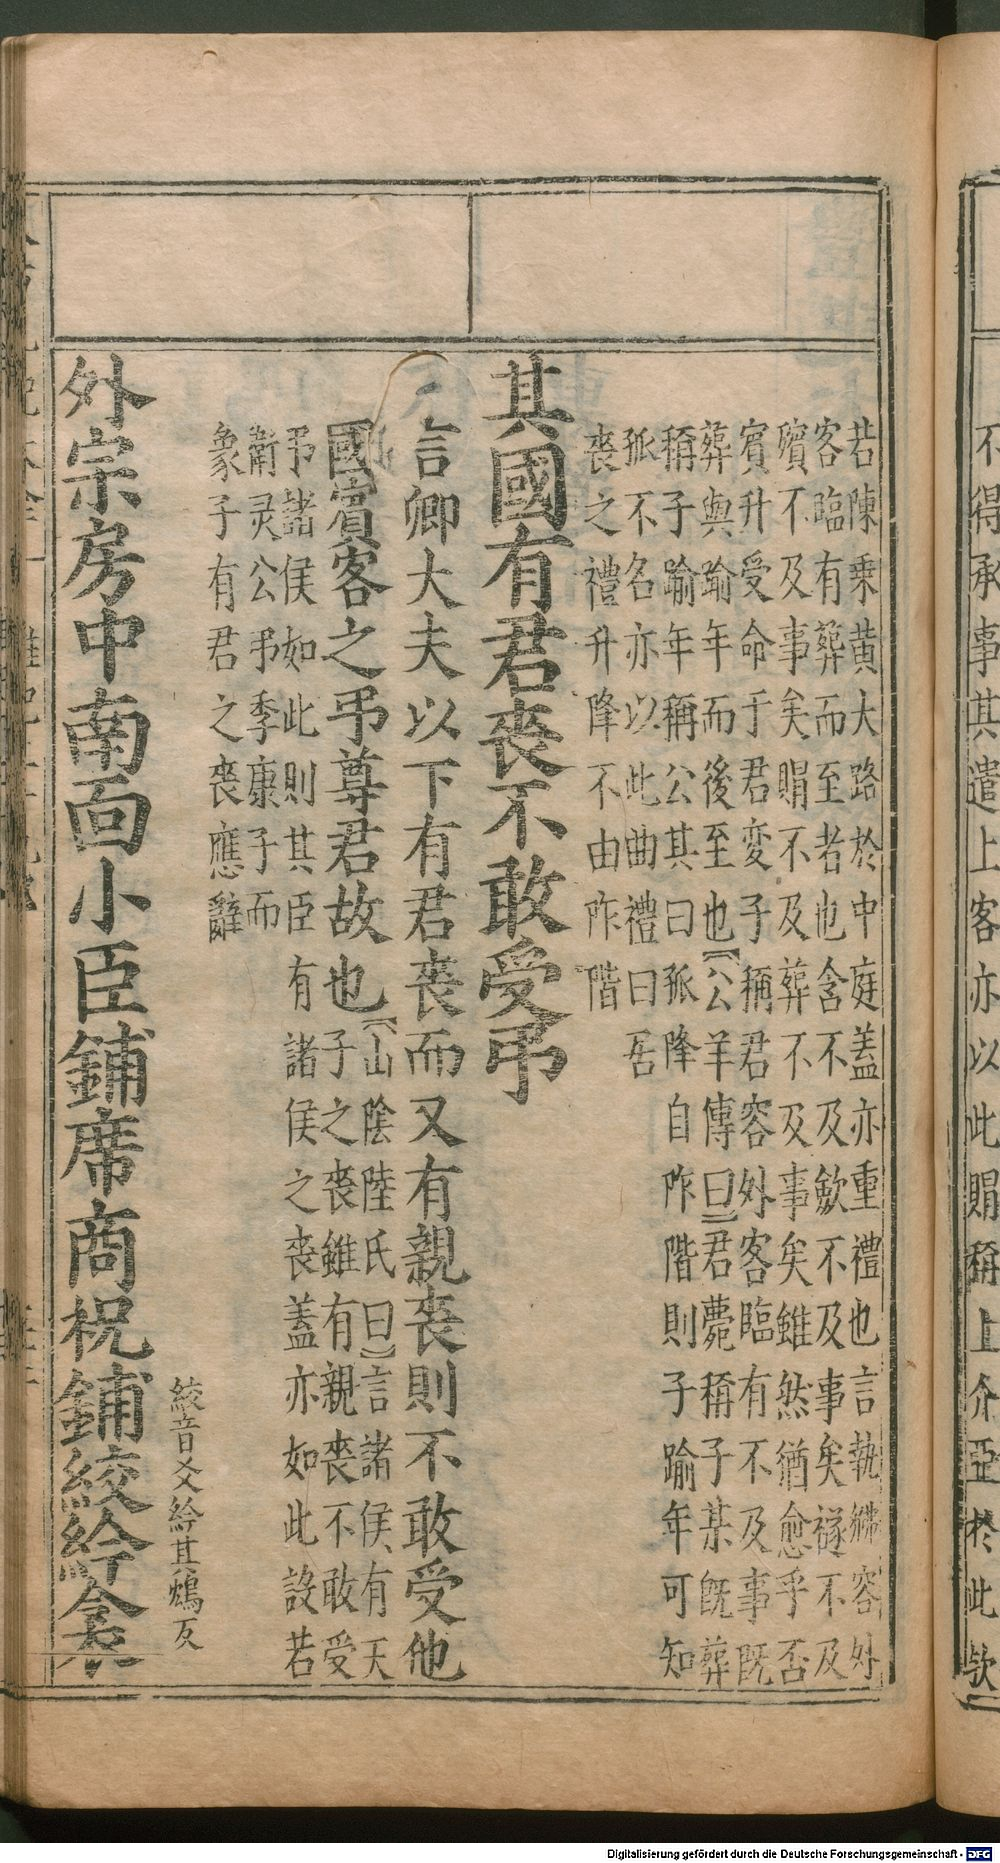 不得承事其遣上客亦以此賵稱上介亞於此欤
若陳乗黄大路於中庭盖亦重禮也言執綍容外
客臨有葬而至者也含不及歛不及事矣襚不及
殯不及事矣賵不及葬不及事矣雖然猶愈乎否
賓升受命于君変子稱君容外客臨有不及事既
葬與踰年而後至也【公羊傳曰】君薨稱子某既葬
稱子踰年稱公其曰孤降自阼階則子踰年可知
孤不名亦以此曲禮曰居
丧之禮升降不由阼階
其國有君丧不敢受弔
言卿大夫以下有君丧而又有親丧則不敢受他
國賓客之弔尊君故也【山陰陸氏曰】言諸侯有天
子之丧雖有親丧不敢受
弔諸侯如此則其臣有諸侯之丧盖亦如此設若
衛灵公弔季康子而
象子有君之丧應辭
絞音爻紟其鴆反
外宗房中南面小臣鋪席商祝鋪絞紟衾
Digitalisierung gefördert durch die Deutsche Forschungsgemeinschaft - DFG